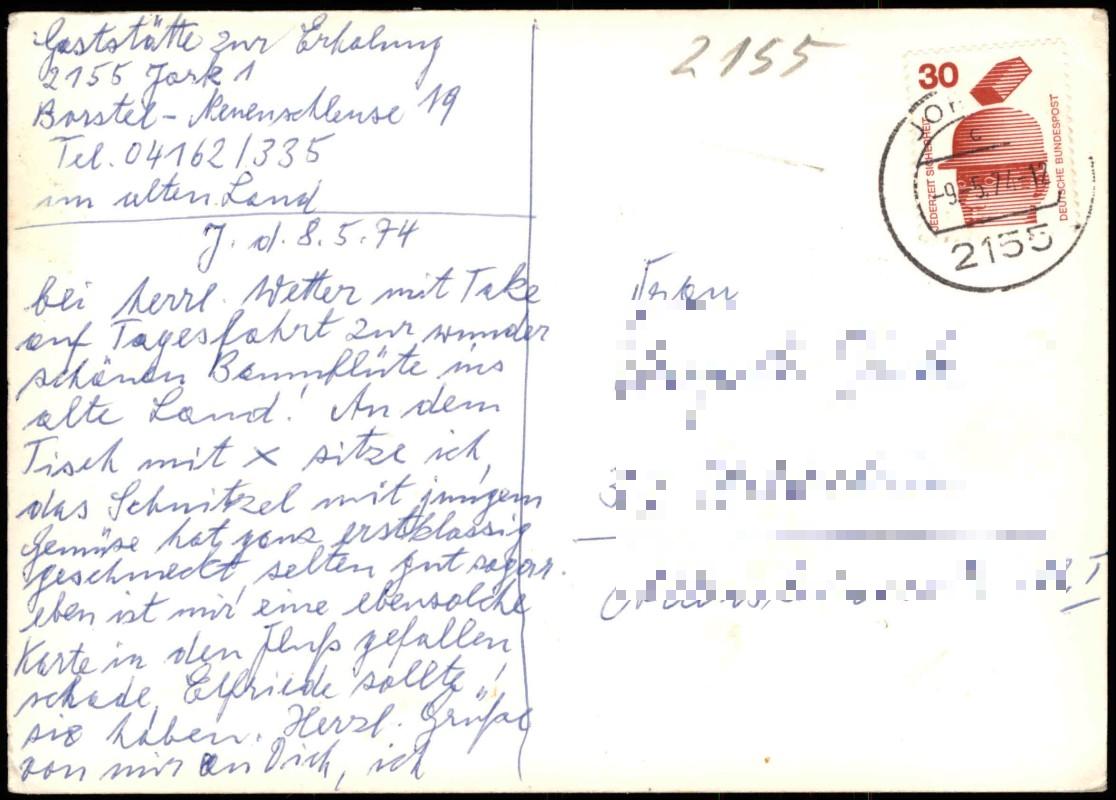 Gaststätte zur Erholung
2155 Jork 1
Borstel - Neuenschleuse 19
Tel. 04162/335
im alten Land
J. d. 8.5.74
bei herrl. Wetter mit Take
auf Tagesfahrt zur wunder
schönen Baumblüte ins
alte Land! An dem
Tisch mit x sitze ich,
das Schnitzel mit jungem
Gemüse hat ganz erstklassig
geschmeckt, selten gut sogar.
eben ist mir eine ebensolche
Karte in den Fluß gefallen
schade, Elfriede sollte
sie haben. Herzl. Grüße
von mir an Dich, ich
2155
30
JEDERZEIT SICHERHEIT
DEUTSCHE BUNDESPOST
JOR
c
-9.5.74-12
2155